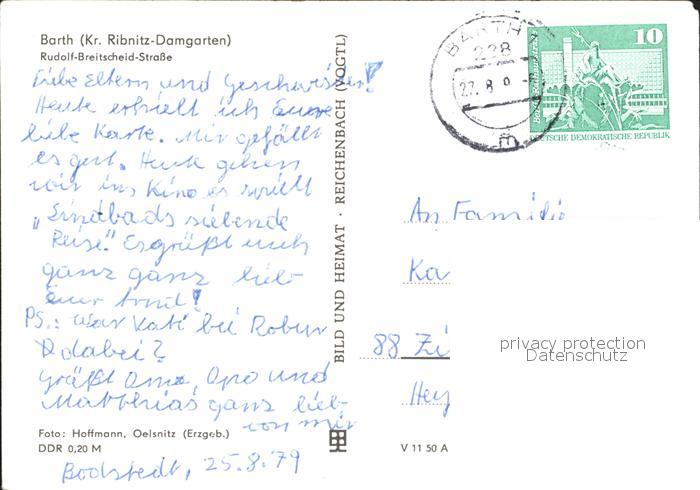 Barth (Kr. Ribnitz-Damgarten)
Rudolf-Breitscheid-Straße
Liebe Eltern und Geschwister!
Heute erhielt ich Eure
liebe Karte. Mir gefällt
es gut. Heute gehen
wir ins Kino es spielt
„Sindbads siebende
Reise." Es grüßt euch
ganz ganz lieb
Euer
PS.: War Kati bei Robur
dabei?
Grüßt Oma, Opa und
Matthias ganz lieb
von mir
Foto: Hoffmann, Oelsnitz (Erzgeb.)
DDR 0,20 M
Bodstedt, 25.8.79
BILD UND HEIMAT · REICHENBACH (VOGTL)
V 11 50 A
BARTH
228
27. 8
10
DEUTSCHE DEMOKRATISCHE REPUBLIK
An Familie
Ka
88 Zi
Hey
privacy protection
Datenschutz